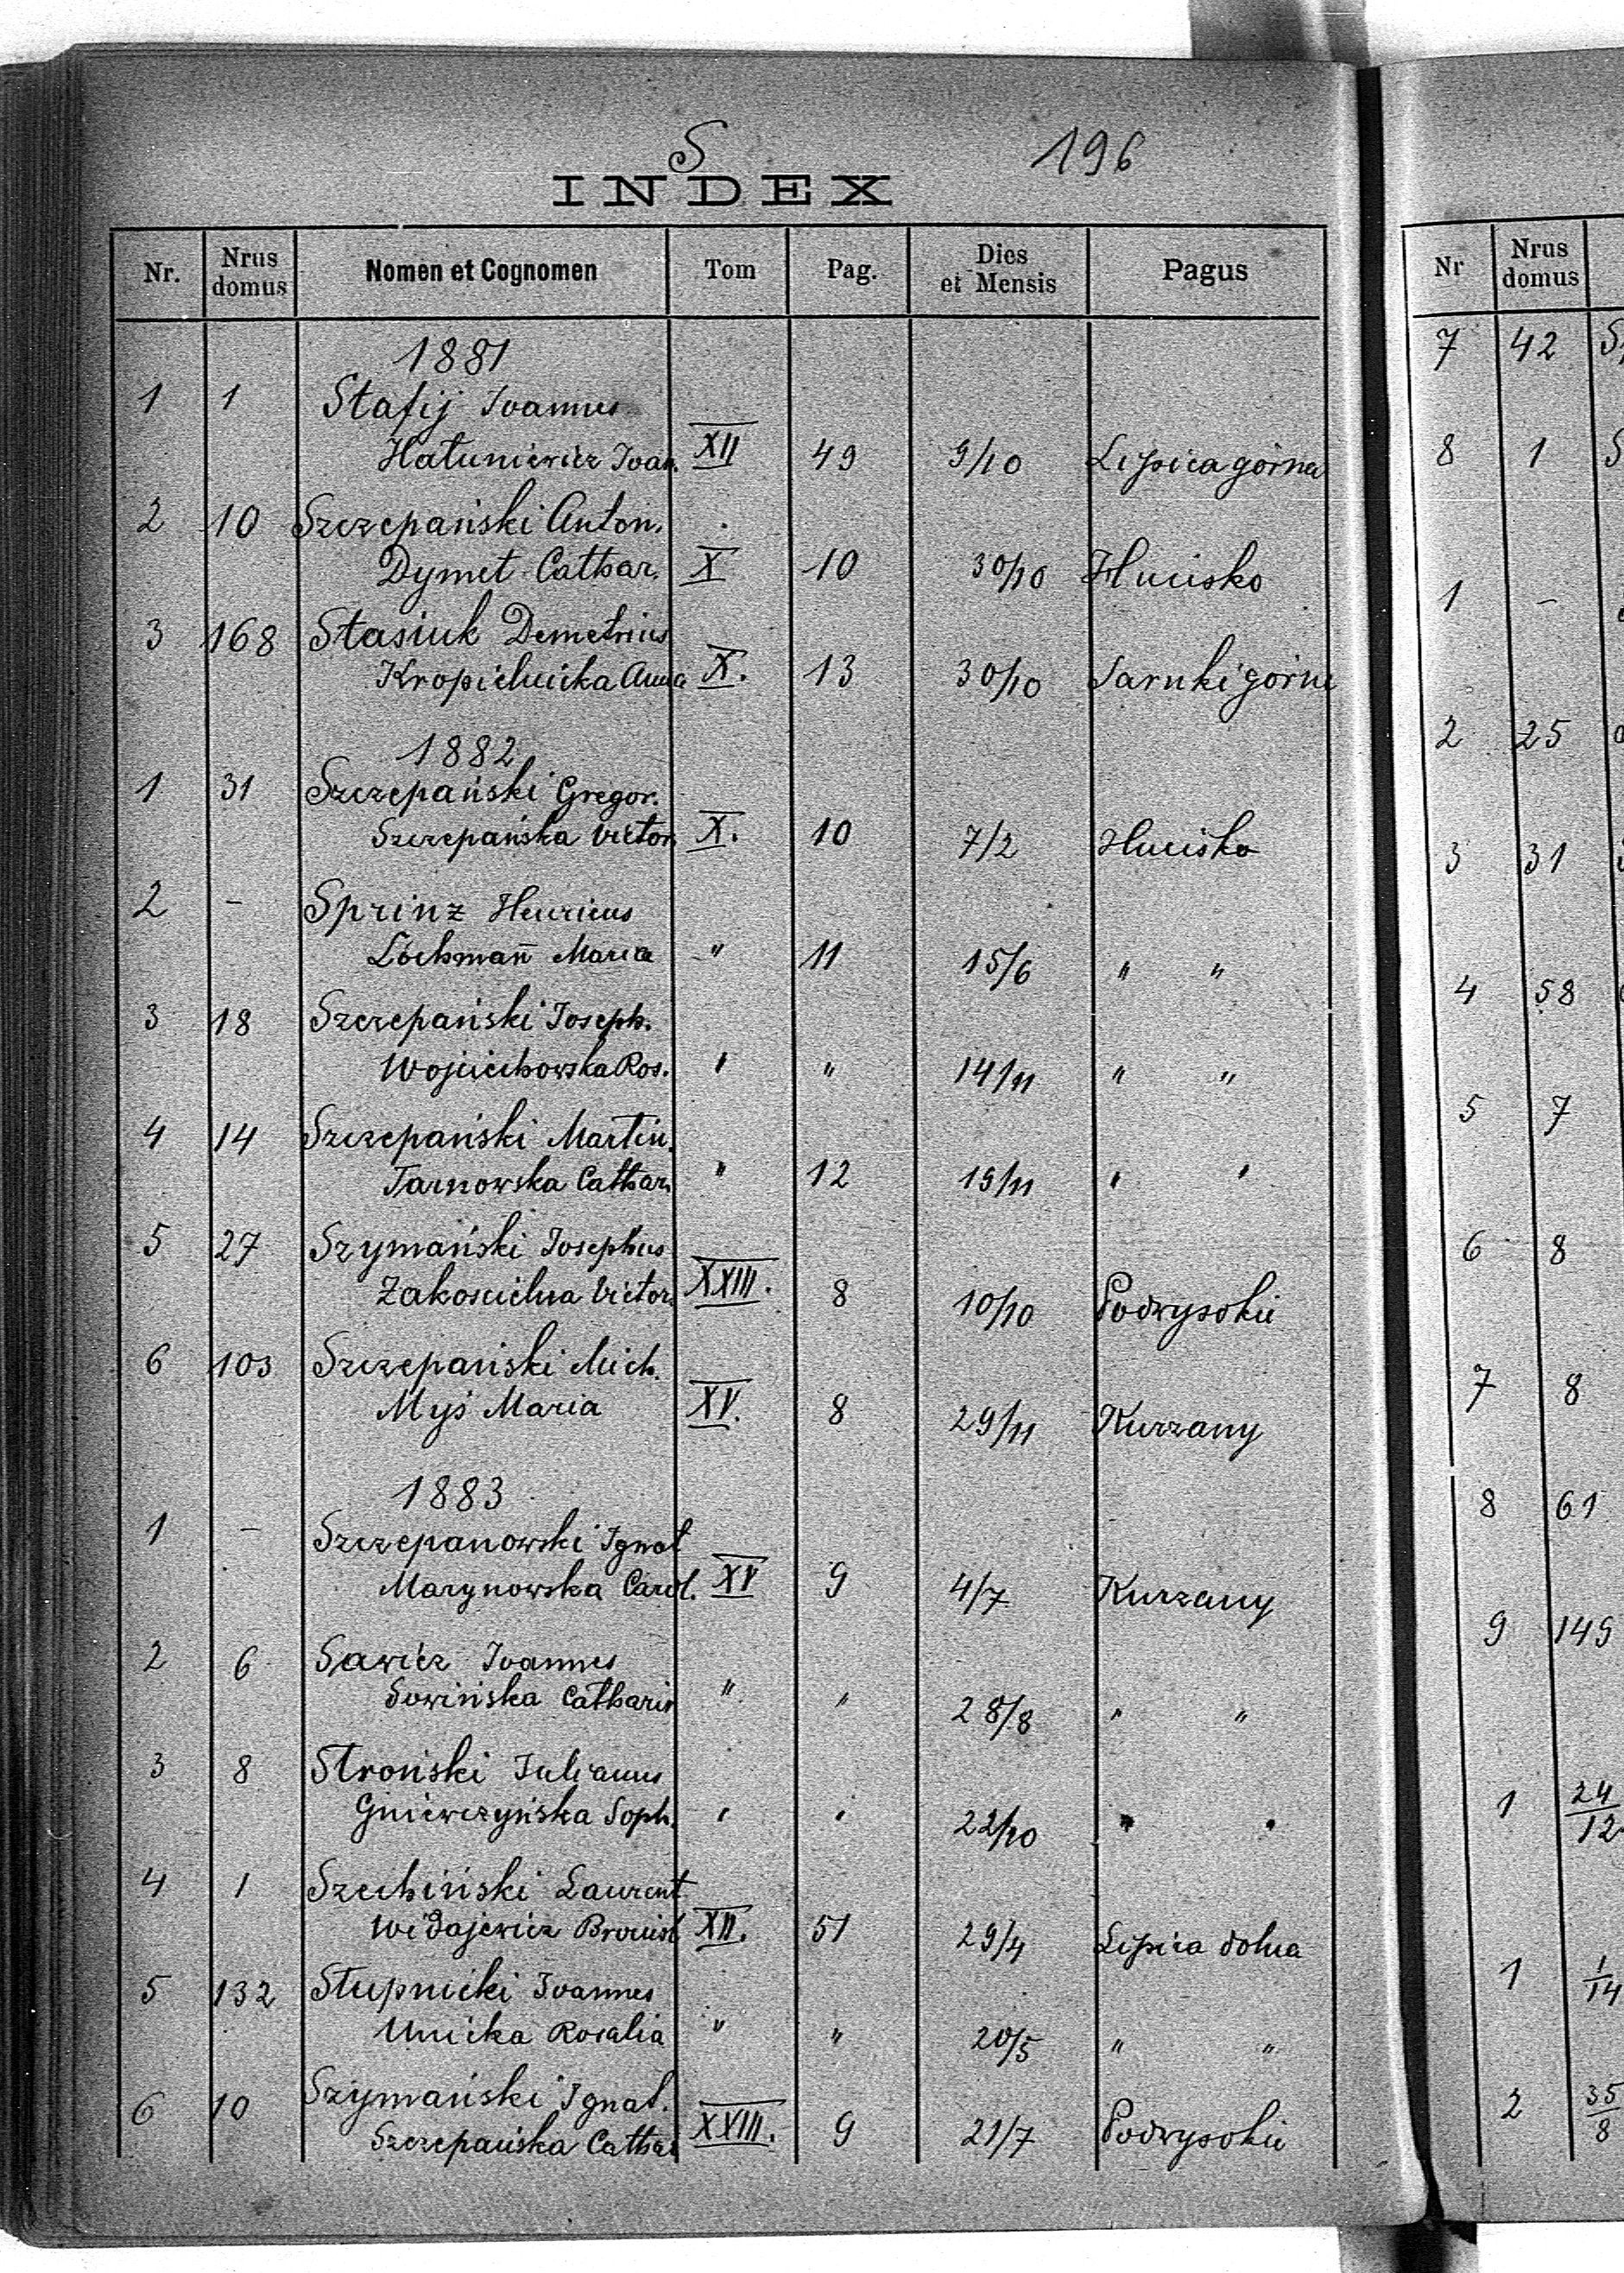 S
196
INDEX
Nr. Nrus domus Nomen et Cognomen Tom Pag. Dies et Mensis Pagus
1881
1 1 Stafij Ioannes
Hatuniewicz Ioan. XII 49 9/10 Lipica górna
2 10 Szczepański Anton.
Dymet Cathar. X 10 30/10 Hucisko
3 168 Stasiuk Demetrius
Kropielnicka Anna X. 13 30/10 Sarnki górne
1882
1 31 Szczepański Gregor.
Szczepańska Victor. X. 10 7/2 Hucisko
2 - Sprinz Henricus
Löchman̄ Maria " 11 15/6 " "
3 18 Szczepański Joseph.
Wojciechowska Ros. " " 14/11 " "
4 14 Szczepański Martin.
Tarnowska Cathar. " 12 19/11 " "
5 27 Szymański Josephus
Zakościelna Victor. XXIII. 8 10/10 Podwysokie
6 103 Szczepański Mich.
Myś Maria XV. 8 29/11 Kurzany
1883
1 - Szczepanowski Ignat
Marynowska Carol. XV 9 4/7 Kurzany
2 6 Sawicz Ioannes
Sowińska Catharin " " 28/8 " "
3 8 Stroński Julianus
Gniewczyńska Soph. " " 22/10 " "
4 1 Szechiński Laurent.
Widajewicz Bronisl XII. 51 29/4 Lipica dolna
5 132 Stupnicki Ioannes
Unicka Rosalia " " 20/5 " "
6 10 Szymański Ignat.
Szczepańska Cathar XXIII. 9 21/7 Podwysokie
Nr Nrus domus
7 42
8 1
1 -
2 25
3 31
4 58
5 7
6 8
7 8
8 61
9 149
1 24/12
1 1/14
2 35/8